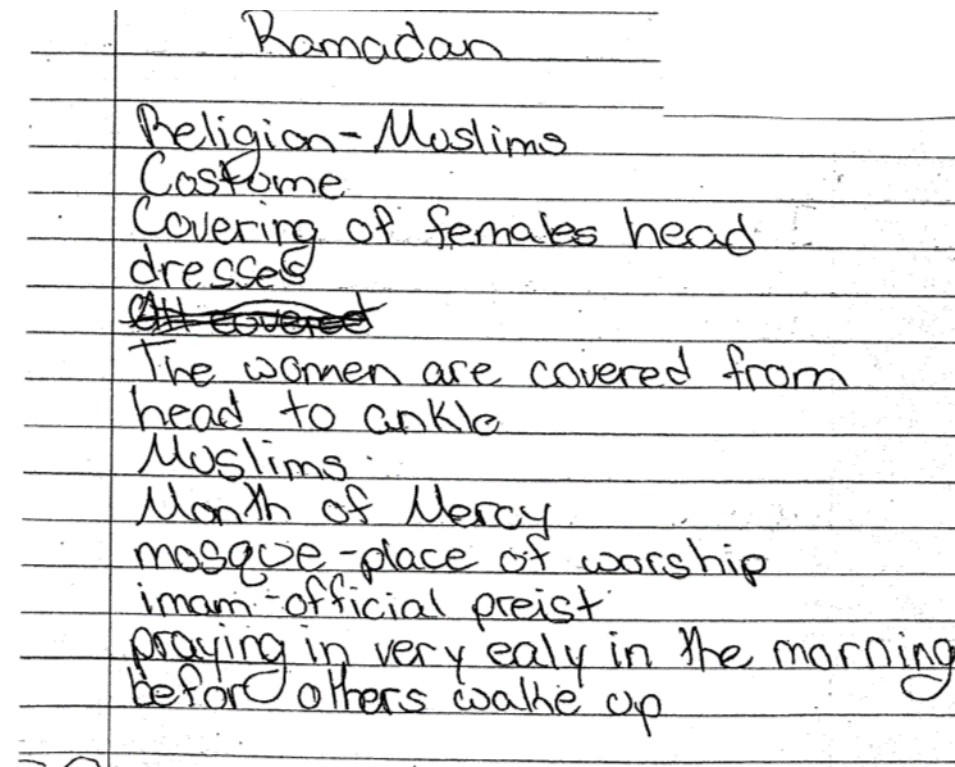 Ramadan
Religion-Muslims
Costume
Covering of females head
dresses
All covered
The women are covered from
head to ankle
Muslims
Month of Mercy
mosque-place of worship
imam-official preist
praying in very ealy in the morning
befor others walke up